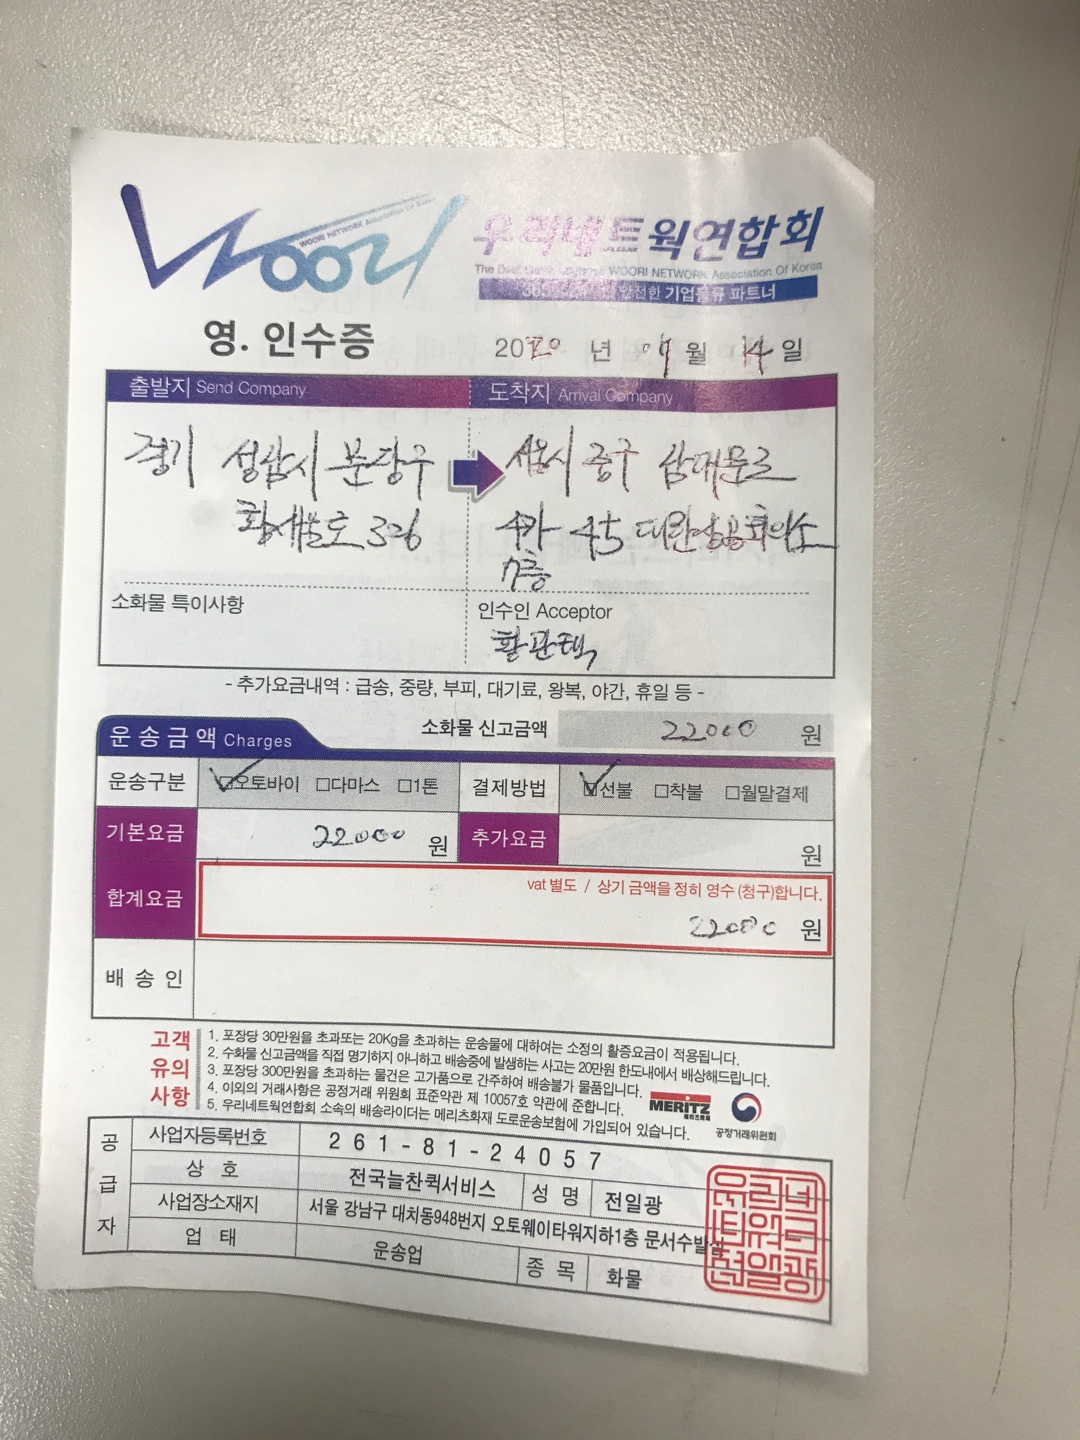 WOORI
WOORI NETWORK Association Of Korea
우리네트웍연합회
The Best Quick WOORI NETWORK Association Of Korea
안전한 기업물류 파트너
영. 인수증
2020 년 09 월 14 일
출발지 Send Company
도착지 Arrival Company
경기 성남시 분당구
황새울로 326
서울시 중구 남대문로
4가 45 대한상공회의소
7층
소화물 특이사항
인수인 Acceptor
황관택
- 추가요금내역 : 급송, 중량, 부피, 대기료, 왕복, 야간, 휴일 등 -
운송금액 Charges
소화물 신고금액 22000 원
운송구분 ☑오토바이 □다마스 □1톤 결제방법 ☑선불 □착불 □월말결제
기본요금 22000 원 추가요금 원
합계요금 vat 별도 / 상기 금액을 정히 영수 (청구)합니다.
22000 원
배 송 인
고객
유의
사항
1. 포장당 30만원을 초과또는 20Kg을 초과하는 운송물에 대하여는 소정의 활증요금이 적용됩니다.
2. 수화물 신고금액을 직접 명기하지 아니하고 배송중에 발생하는 사고는 20만원 한도내에서 배상해드립니다.
3. 포장당 300만원을 초과하는 물건은 고가품으로 간주하여 배송불가 물품입니다.
4. 이외의 거래사항은 공정거래 위원회 표준약관 제 10057호 약관에 준합니다.
5. 우리네트웍연합회 소속의 배송라이더는 메리츠화재 도로운송보험에 가입되어 있습니다.
MERITZ
메리츠화재
공정거래위원회
공급자
사업자등록번호 261-81-24057
상 호 전국늘찬퀵서비스 성 명 전일광
사업장소재지 서울 강남구 대치동948번지 오토웨이타워지하1층 문서수발실
업 태 운송업 종 목 화물
우리네
트웍크
전일광